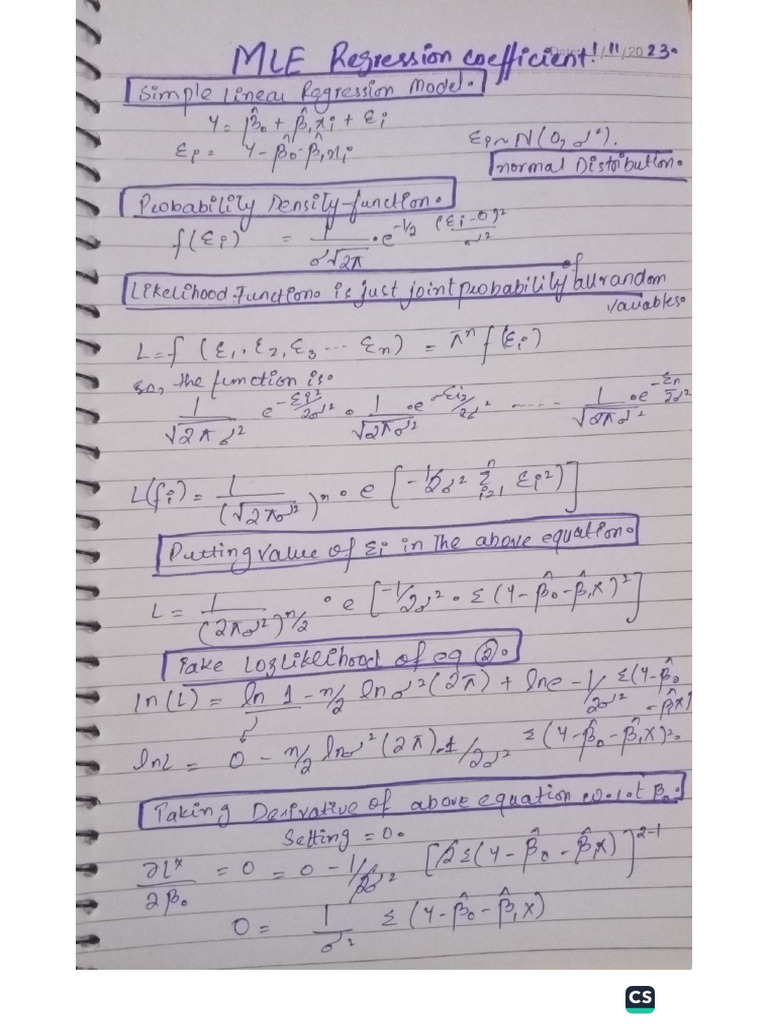 MLE Regression coefficient! 1/11/2023.
Simple Linear Regression Model.
Y = β̂₀ + β̂₁xᵢ + Ɛᵢ
Ɛᵢ = Y - β̂₀ - β̂₁xᵢ
Ɛᵢ ~ N(0, σ²).
normal Distribution.
Probability Density function.
f(Ɛᵢ) = 1/σ√2π · e^-1/2 (Ɛᵢ-0)²/σ²
Likelihood Function is just joint probability of all random
variables.
L = f (Ɛ₁, Ɛ₂, Ɛ₃ ... Ɛn) = πⁿ f(Ɛᵢ)
so, the function is.
1/√2πσ² e^-Ɛᵢ²/2σ² · 1/√2πσ² · e^-Ɛi₂/2σ² ..... 1/√2πσ² · e^-Ɛn/2σ²
L(fᵢ) = 1/(√2πσ²)ⁿ · e [-1/2σ² Σⁿᵢ₌₁ Ɛᵢ²)]
Putting value of Ɛi in the above equation.
L = 1/(2πσ²)^n/2 · e [-1/2σ² · Σ(Y - β̂₀ - β̂₁x)²]
Take Loglikelihood of eq ②.
ln(L) = ln 1 - n/2 lnσ²(2π) + lne - 1/2σ² Σ(Y - β̂₀
- β̂₁x)
lnL = 0 - n/2 lnσ²(2π) - 1/2σ² Σ(Y - β̂₀ - β̂₁x)².
Taking Derivative of above equation w.r.t β₀.
Setting = 0.
∂Lˣ/∂β₀ = 0 = 0 - 1/2σ² [2Σ(Y - β̂₀ - β̂₁x)]²⁻¹
0 = 1/σ² Σ(Y - β̂₀ - β̂₁x)
CS